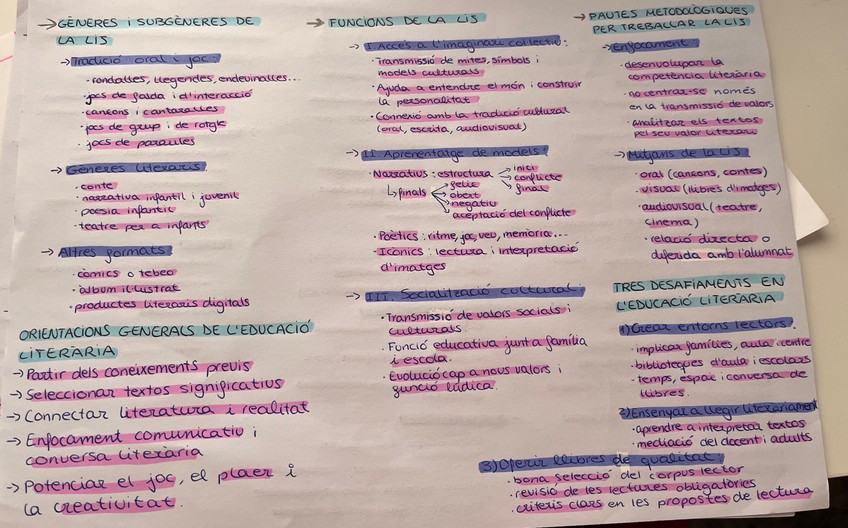 → GÈNERES I SUBGÈNERES DE
LA LIJ
→ Tradició oral i joc:
· rondalles, llegendes, endevinalles...
· jocs de falda i d'interacció
· cançons i cantarelles
· jocs de grup i de rotgle
· jocs de paraules
→ Gèneres literaris:
· conte
· narrativa infantil i juvenil
· poesia infantil
· teatre per a infants
→ Altres formats
· còmics o tebeo
· àlbum il·lustrat
· productes literaris digitals
ORIENTACIONS GENERALS DE L'EDUCACIÓ
LITERÀRIA
→ Partir dels coneixements previs
→ Seleccionar textos significatius
→ Connectar literatura i realitat
→ Enfocament comunicatiu i
conversa literària
→ Potenciar el joc, el plaer i
la creativitat.
→ FUNCIONS DE LA LIJ
→ I Accés a l'imaginari col·lectiu:
· Transmissió de mites, símbols i
models culturals
· Ajuda a entendre el món i construir
la personalitat
· Connexió amb la tradició cultural
(oral, escrita, audiovisual)
→ II Aprenentatge de models:
· Narratius: estructura → inici
→ conflicte
→ final
↳ finals → feliç
→ obert
→ negatiu
→ aceptació del conflicte
· Poètics: ritme, joc, veu, memòria...
· Icònics: lectura i interpretació
d'imatges
→ III. Socialització cultural:
· Transmissió de valors socials i
culturals
· Funció educativa junt a família
i escola.
· Evolució cap a nous valors i
funció lúdica.
→ PAUTES METODOLÒGIQUES
PER TREBALLAR LA LIJ
→ Enfocament
· desenvolupar la
competència literària
· no centrar-se només
en la transmissió de valors
· analitzar els textos
pel seu valor literari
→ Mitjans de la LIJ
· oral (cançons, contes)
· visual (llibres d'imatges)
· audiovisual (teatre,
cinema)
· relació directa o
diferida amb l'alumnat
TRES DESAFIAMENTS EN
L'EDUCACIÓ LITERÀRIA
1) Crear entorns lectors:
· implicar famílies, aula i centre
· biblioteques d'aula i escolars
· temps, espai i conversa de
llibres.
2) Ensenyal a llegir literàriament
· aprendre a interpretar textos
· mediació del docent i adults
3) Oferir llibres de qualitat
· bona selecció del corpus lector
· revisió de les lectures obligatòries
· criteris clars en les propostes de lectura